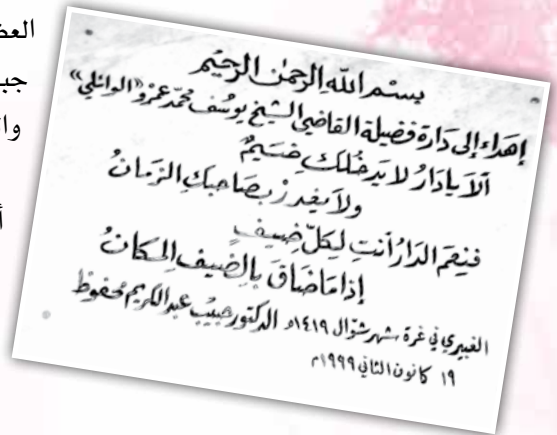 بسم الله الرحمن الرحيم
إهداء إلى دارة فضيلة القاضي الشيخ يوسف محمد عمرو «الوائلي»
ألا يا دارُ لا يدخلكِ ضيمٌ
ولا يغدرْ بصاحبكِ الزمانُ
فنِعمَ الدارُ أنتِ لكلّ ضيفٍ
إذا ما ضاقَ بالضيفِ المكانُ
الغبيري في غرة شهر شوّال ١٤١٩هـ الدكتور حبيب عبد الكريم محفوظ
١٩ كانون الثاني ١٩٩٩م